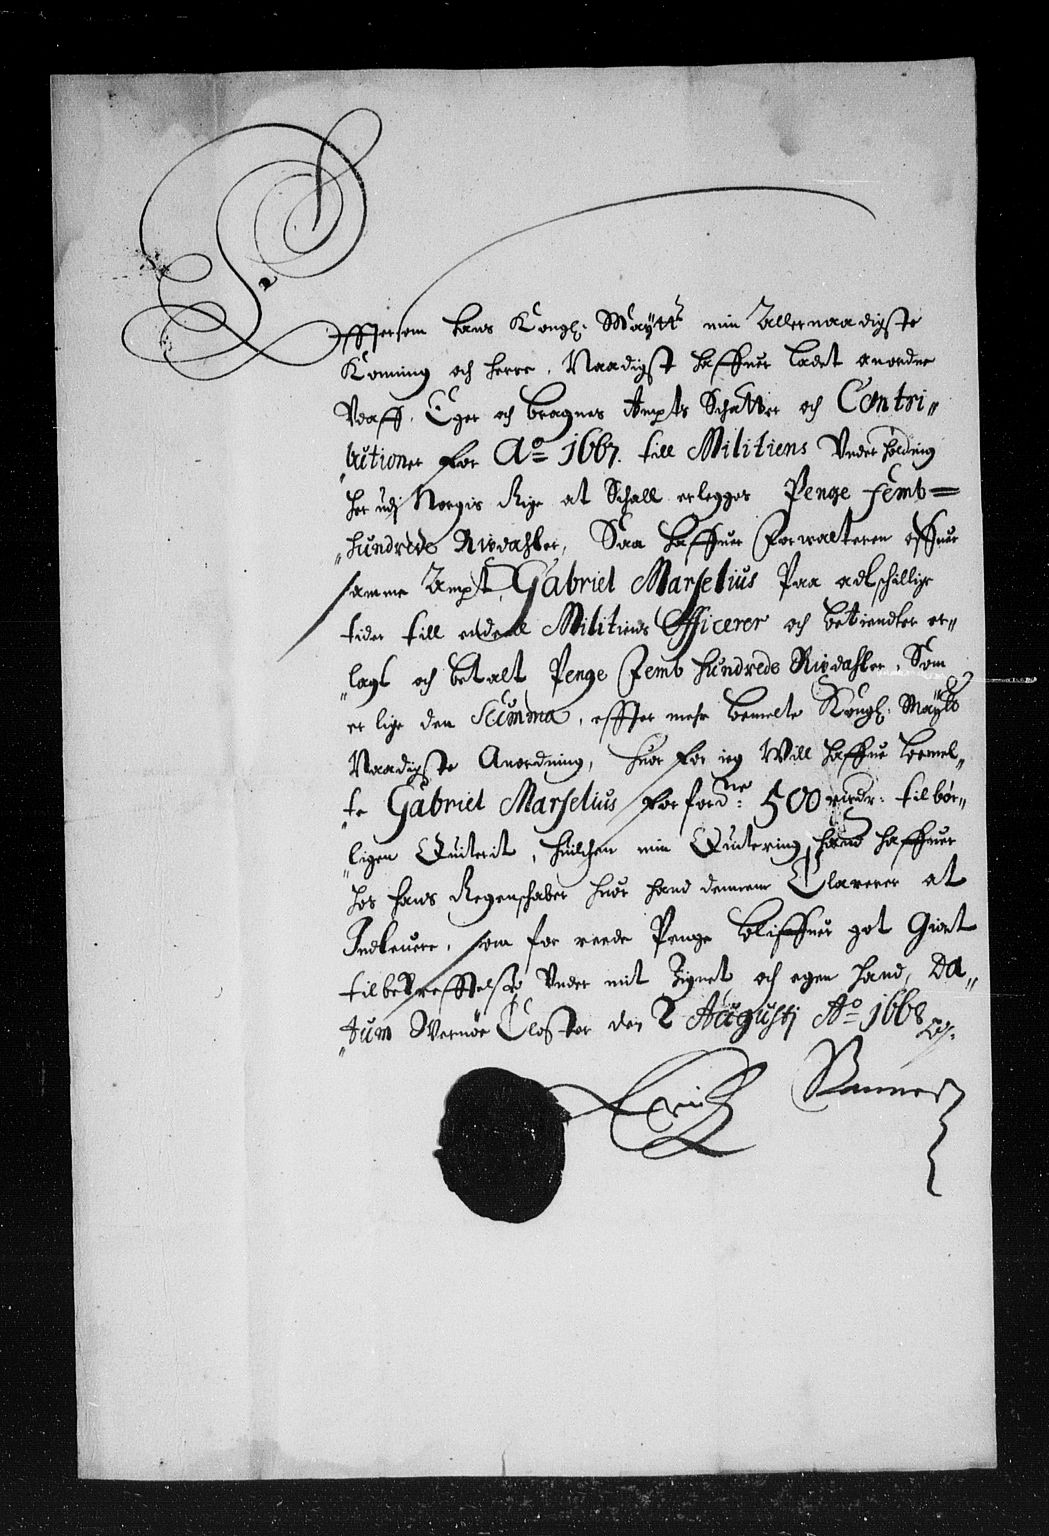 Effttersom hans Kongl: Maÿttz min Allernaadigste
Konning och herre, Naadigst haffuer ladet anordne
Vdaff, Eger och bragnes Ampts Schatter och Contri„
„butioner For Ao 1667. till Militiens Vnderholding
her udj Norgis Rige at Schall erlegges Penge femb=
„hundrede Rixdahler, Saa haffuer Forwalteren offuer
samme Ampt, Gabriel Marselius Paa adschillige
tider till endeell Militiens Officerer och betiendter er„
„lagt och betalt Penge Femb hundrede Rixdahler, Som
er lige den Summa, effter mehr bemelte Kongl: Maÿtz
Naadigste Anordning, huor for ieg Will haffue bemel„
„te Gabriel Marselius for forne: 500 rixdr: tilbör„
„ligen Quiterit, huilchen min Quitering hand haffuer
hos hans Regenschaber huor hand dennem Clarerer at
Indleuere, som for reede Penge bliffuer got Giort
til bekrefftelse Vnder mit Zignet och egen hand, Da„
„tum Wernöe Closter den 2 Augustj Ao 1668
Erick Banner